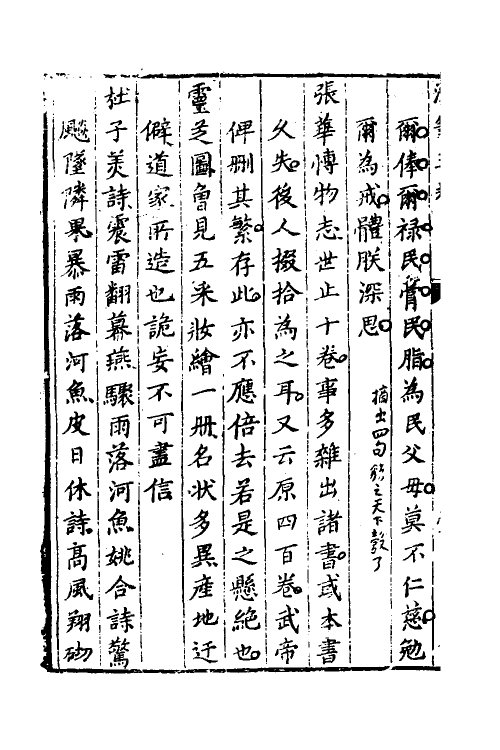 爾俸爾禄民膏民脂為民父母莫不仁慈勉
爾為戒體朕深思
摘出四句
天下
了
張華博物志世止十卷事多雜出諸書或本書
久失後人掇拾為之耳又云原四百卷武帝
俾刪其繁存此亦不應倍去若是之懸絶也
靈芝圖曾見五采妝繪一册名状多異産地迂
僻道家所造也詭妄不可盡信
杜子美詩震雷翻幕燕驟雨落河魚姚合詩驚
飈墜隣果暴雨落河魚皮日休詩髙風翔砌